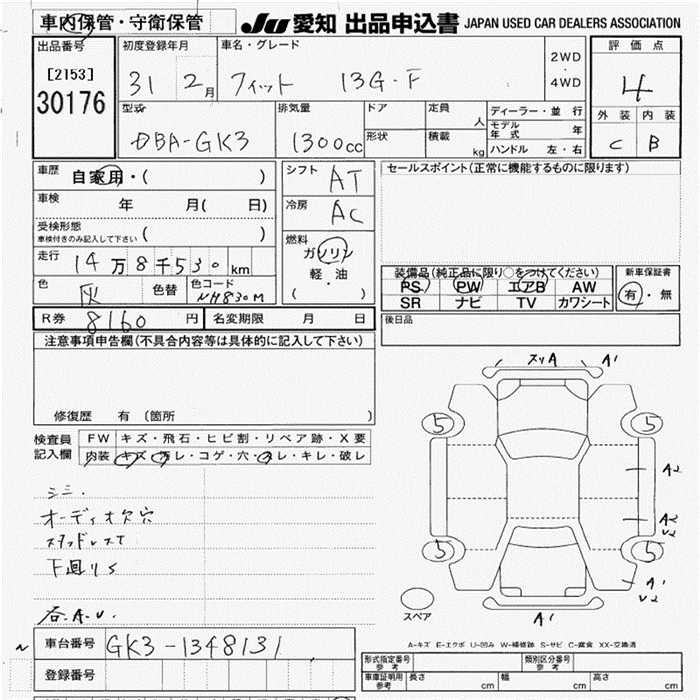 車内保管・守衛保管
JU 愛知 出品申込書 JAPAN USED CAR DEALERS ASSOCIATION
出品番号
[2153]
30176
初度登録年月
31 2月
車名・グレード
フィット 13G・F
2WD
・
4WD
評価点
4
外装 内装
C B
型式
DBA-GK3
排気量
1300cc
ドア
形状
定員 人
積載 kg
ディーラー・並行
モデル年式 年
ハンドル 左・右
車歴
自家用・( )
車検
年 月( 日)
受検形態
車検付きのみ記入して下さい ( )
走行
14万8千530km
色
灰
色替
色コード
NH830M
シフト
AT
冷房
AC
燃料
ガソリン
軽・油
( )
セールスポイント(正常に機能するものに限ります)
装備品(純正品に限り○をつけてください)
PS PW エアB AW
SR ナビ TV カワシート
新車保証書
有・無
R券 8160円
名変期限 月 日
後日品
注意事項申告欄(不具合内容等は具体的に記入して下さい)
修復歴 有 〔箇所
検査員
記入欄
FW キズ・飛石・ヒビ割・リペア跡・X要
内装 キズ・汚レ・コゲ・穴・スレ・キレ・破レ
シミ.
オーディオ欠穴
スタッドレスT
下回りS
各.A.U.
スリA A1
5 5
A2
A2
U2
5 5
A1
U2
A1
スペア
A-キズ E-エクボ U-凹み W-補修跡 S-サビ C-腐食 XX-交換済
車台番号
GK3-1348131
登録番号
N
形式指定番号
参考
類別区分番号
参考
車庫証明用
参考
長さ cm
幅 cm
高さ cm